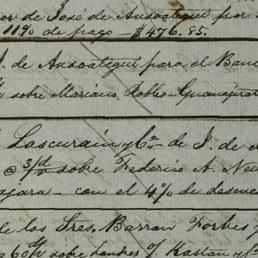 or de José de Ansoategui por
11% de pago — $476.85.
J. de Ansoategui para el Ban
sobre Mariano Robles Guanajuat
Lascurain y Ca. de J. de
@ 3/d sobre Federico A. New
ajara — con el 4% de descue
de los Sres. Barron Forbes y
60 d/v sobre